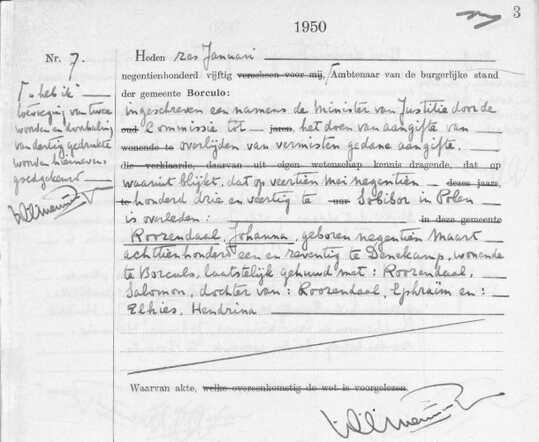 3
1950
Nr. 7.
Heden zes Januari
negentienhonderd vijftig verscheen voor mij, Ambtenaar van de burgerlijke stand
der gemeente Borculo:
"heb ik"
toevoeging van twee
woorden en doorhaling
van dertig gedrukte
woorden hiernevens
goedgekeurd
ingeschreven een namens de Minister van Justitie door de
oud Commissie tot jaren, het doen van aangifte van
wonende te overlijden van vermisten gedane aangifte,
die verklaarde, daarvan uit eigen wetenschap kennis dragende, dat op
waaruit blijkt, dat op veertien mei negentien deses jaars
honderd drie en veertig te uur Sobibor in Polen
is overleden: in deze gemeente
Roozendaal, Johanna, geboren negentien Maart
achttienhonderd een en zeventig te Denekamp, wonende
te Borculo, laatstelijk gehuwd met: Roozendaal,
Salomon, dochter van: Roozendaal, Ephraïm en:
Elkies, Hendrina
Waarvan akte, welke overeenkomstig de wet is voorgelezen.